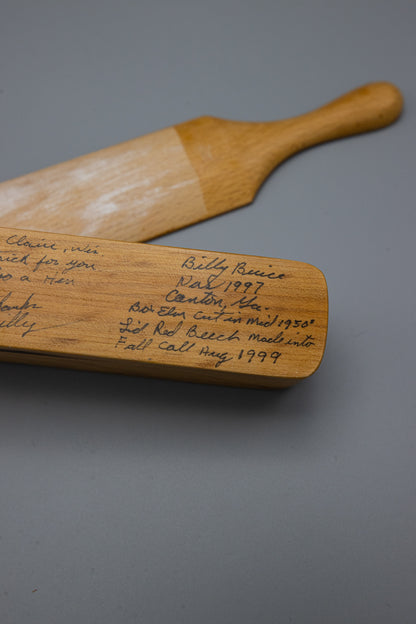 Claire, Wis.
for you
a Hen
Billy Buice
Nov 1997
Canton, Ga.
Box Elm cut in Mid 1950s
Lid Red Beech Made into
Fall Call Aug 1999